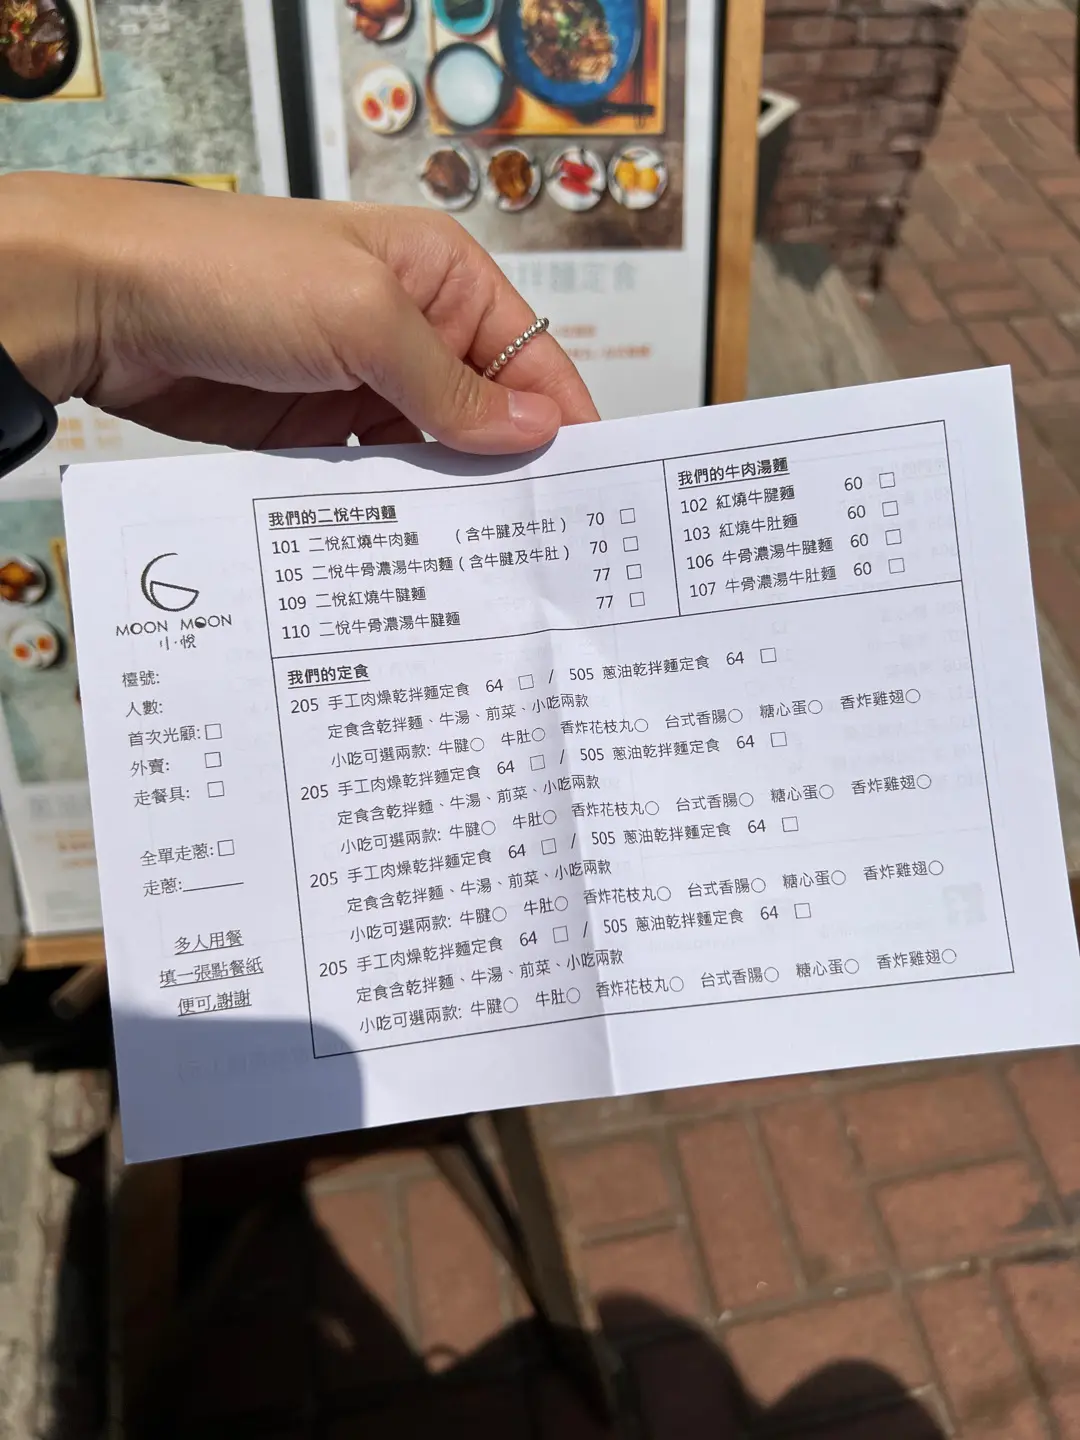 拌麵定食
MOON MOON
小·悅
檯號:
人數:
首次光顧: □
外賣: □
走餐具: □
全單走蔥: □
走蔥:______
多人用餐
填一張點餐紙
便可,謝謝
我們的二悅牛肉麵
101 二悅紅燒牛肉麵 (含牛腱及牛肚) 70 □
105 二悅牛骨濃湯牛肉麵 (含牛腱及牛肚) 70 □
109 二悅紅燒牛腱麵 77 □
110 二悅牛骨濃湯牛腱麵 77 □
我們的牛肉湯麵
102 紅燒牛腱麵 60 □
103 紅燒牛肚麵 60 □
106 牛骨濃湯牛腱麵 60 □
107 牛骨濃湯牛肚麵 60 □
我們的定食
205 手工肉燥乾拌麵定食 64 □ / 505 蔥油乾拌麵定食 64 □
定食含乾拌麵、牛湯、前菜、小吃兩款
小吃可選兩款: 牛腱○ 牛肚○ 香炸花枝丸○ 台式香腸○ 糖心蛋○ 香炸雞翅○
205 手工肉燥乾拌麵定食 64 □ / 505 蔥油乾拌麵定食 64 □
定食含乾拌麵、牛湯、前菜、小吃兩款
小吃可選兩款: 牛腱○ 牛肚○ 香炸花枝丸○ 台式香腸○ 糖心蛋○ 香炸雞翅○
205 手工肉燥乾拌麵定食 64 □ / 505 蔥油乾拌麵定食 64 □
定食含乾拌麵、牛湯、前菜、小吃兩款
小吃可選兩款: 牛腱○ 牛肚○ 香炸花枝丸○ 台式香腸○ 糖心蛋○ 香炸雞翅○
205 手工肉燥乾拌麵定食 64 □ / 505 蔥油乾拌麵定食 64 □
定食含乾拌麵、牛湯、前菜、小吃兩款
小吃可選兩款: 牛腱○ 牛肚○ 香炸花枝丸○ 台式香腸○ 糖心蛋○ 香炸雞翅○